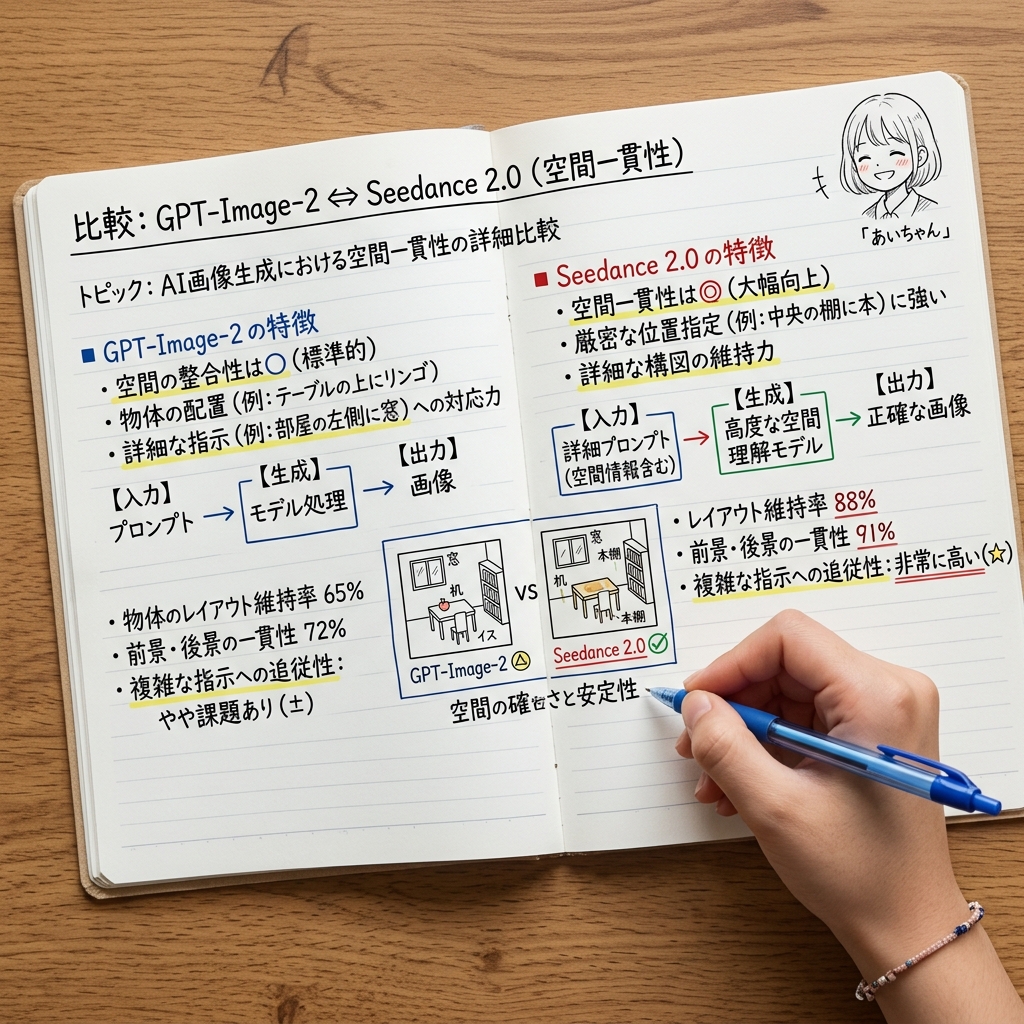 比較: GPT-Image-2 ⇔ Seedance 2.0 (空間一貫性)
トピック: AI画像生成における空間一貫性の詳細比較
■ GPT-Image-2 の特徴
・空間の整合性は○ (標準的)
・物体の配置 (例:テーブルの上にリンゴ)
・詳細な指示 (例:部屋の左側に窓) への対応力
【入力】
プロンプト
→
【生成】
モデル処理
→
【出力】
画像
・物体のレイアウト維持率 65%
・前景・後景の一貫性 72%
・複雑な指示への追従性:
やや課題あり (±)
「あいちゃん」
■ Seedance 2.0 の特徴
・空間一貫性は◎ (大幅向上)
・厳密な位置指定 (例:中央の棚に本) に強い
・詳細な構図の維持力
【入力】
詳細プロンプト
(空間情報含む)
→
【生成】
高度な空間
理解モデル
→
【出力】
正確な画像
・レイアウト維持率 88%
・前景・後景の一貫性 91%
・複雑な指示への追従性: 非常に高い(☆)
窓
机
イス
GPT-Image-2 △
VS
窓
本棚
机
本棚
Seedance 2.0 ✓
空間の確さと安定性